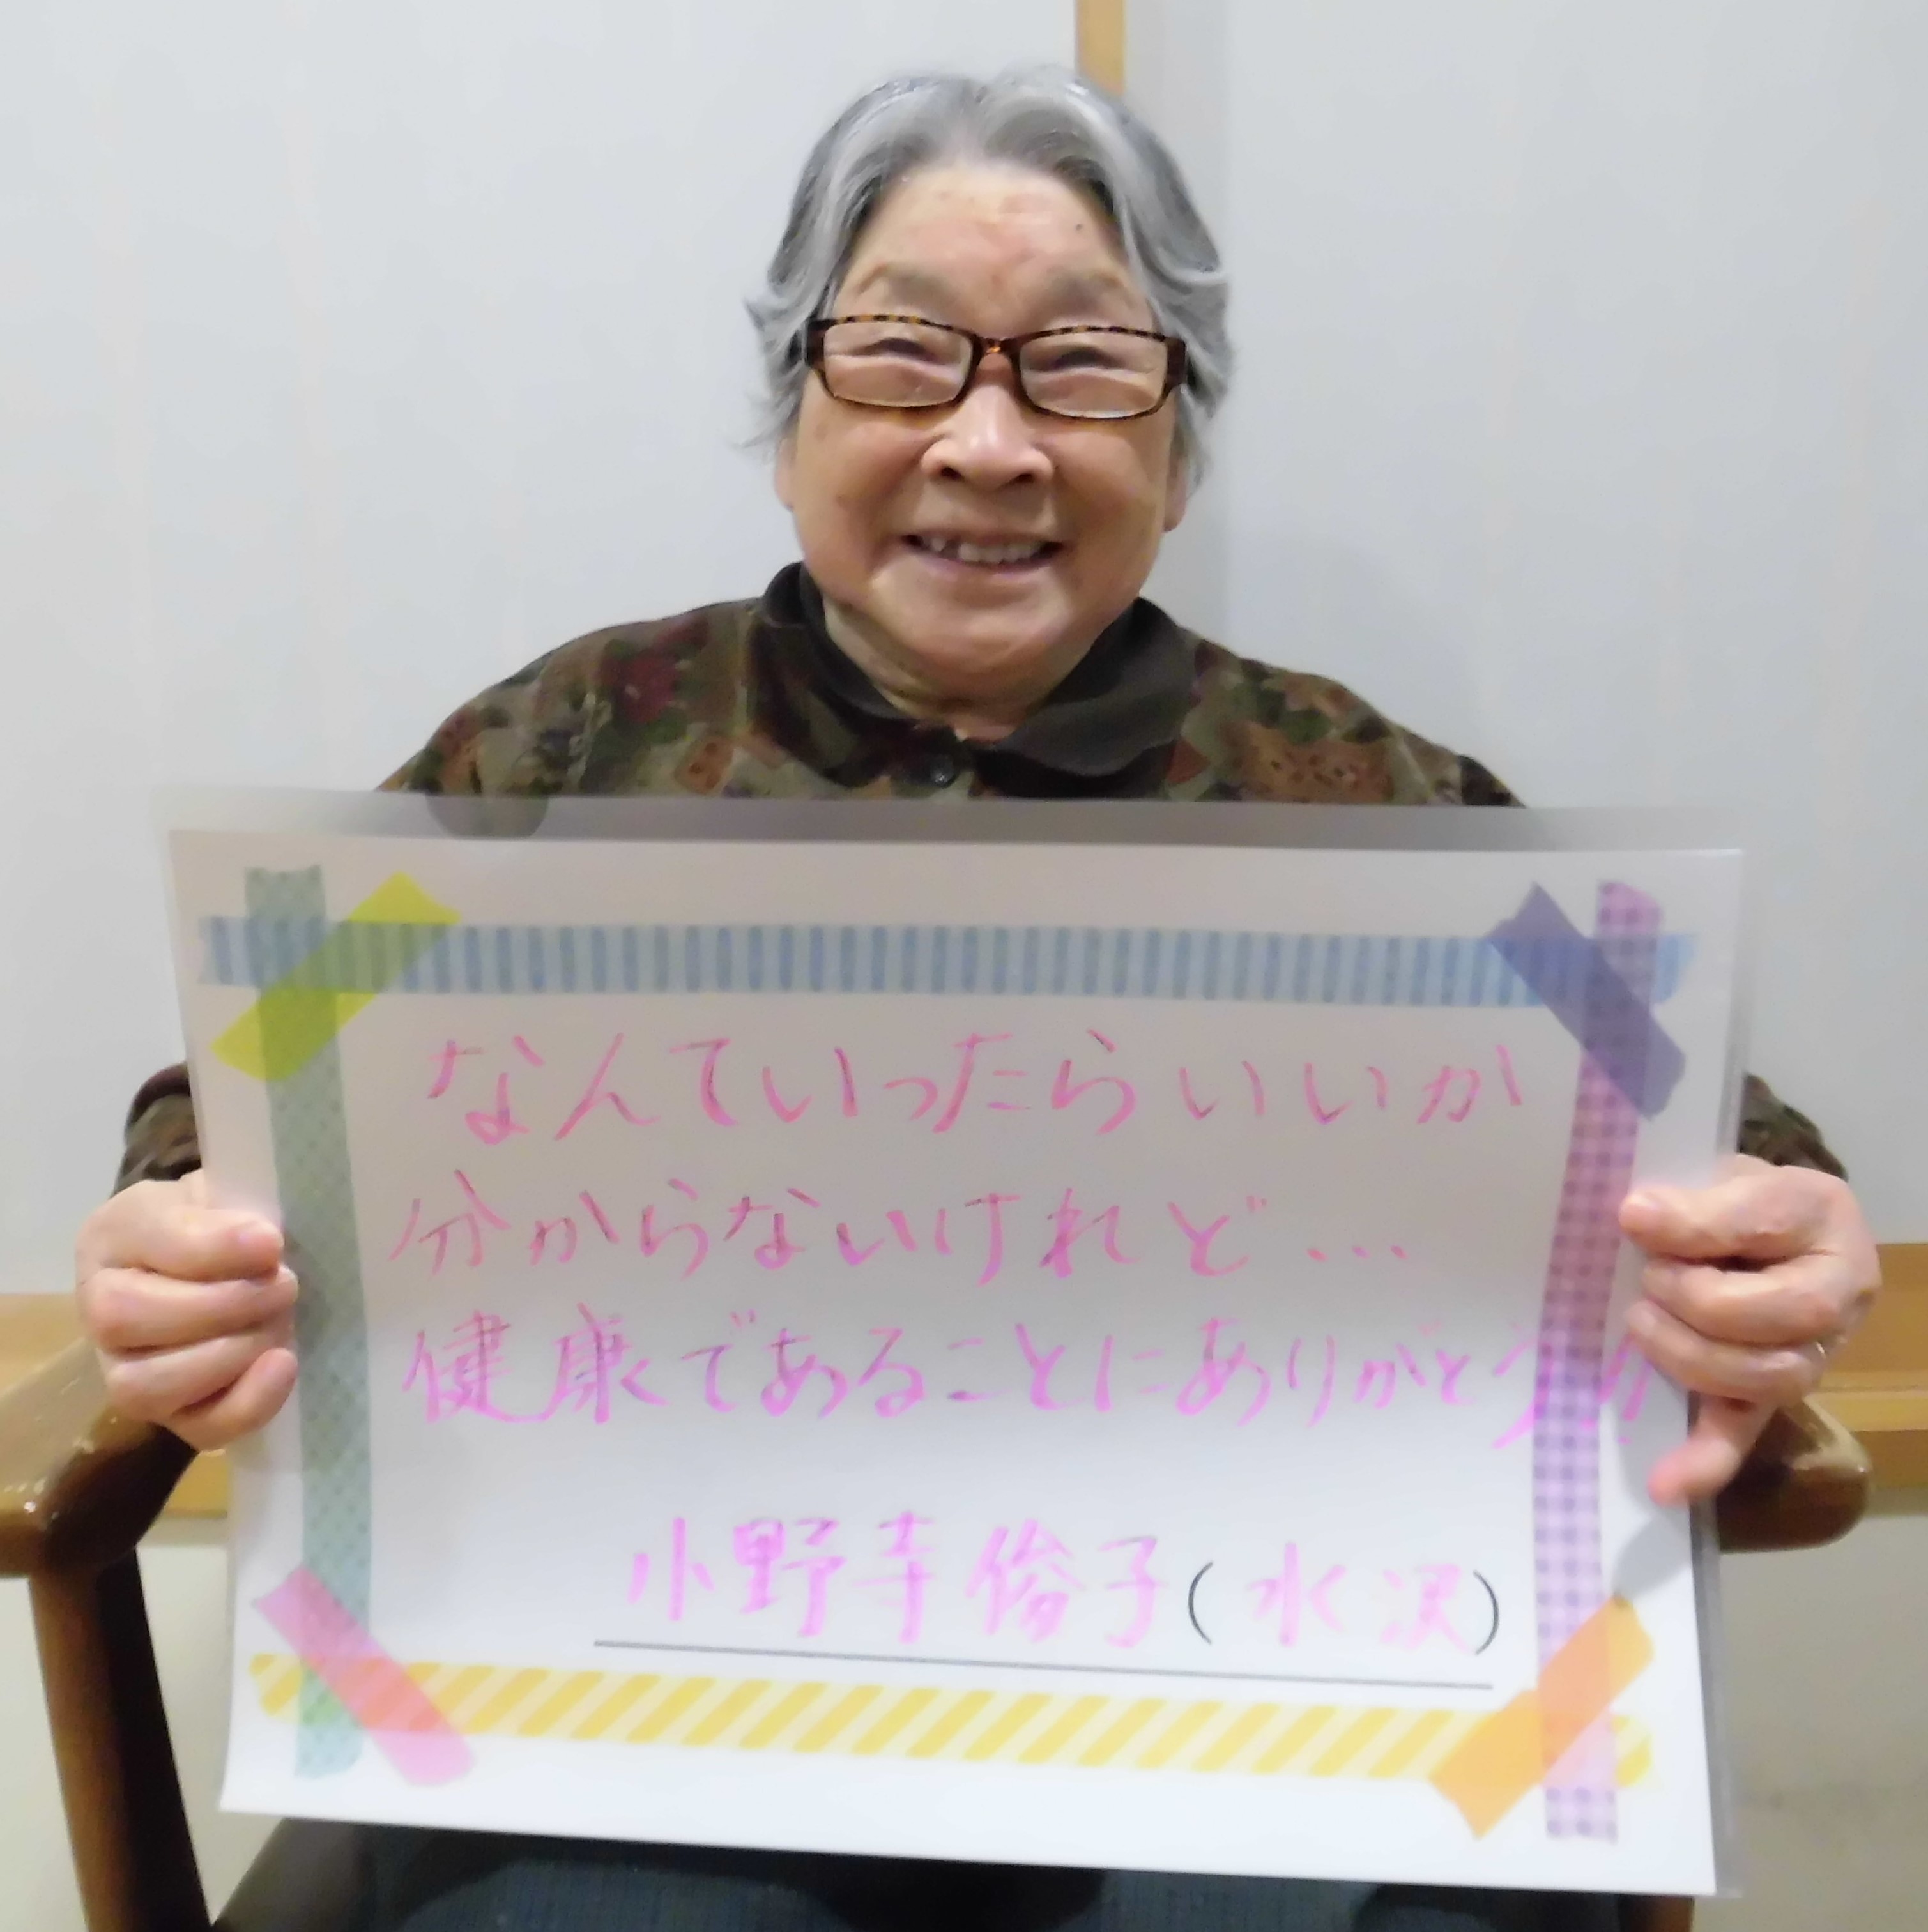 なんていったらいいか
分からないけれど…
健康であることにありがとう!!
小野寺俊子(水沢)